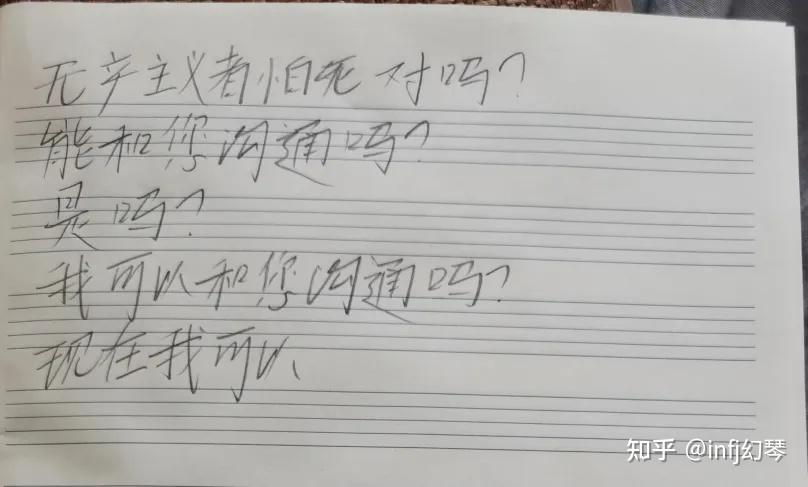 无产主义者怕死对吗?
能和您沟通吗?
是吗?
我可以和您沟通吗?
现在我可以
知乎 @infj幻琴